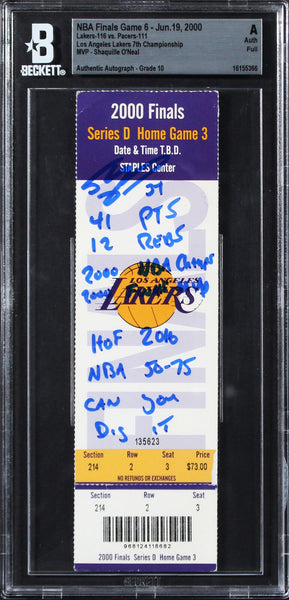 BECKETT
NBA Finals Game 6 - Jun.19, 2000
Lakers-116 vs. Pacers-111
Los Angeles Lakers 7th Championship
MVP - Shaquille O'Neal
Authentic Autograph - Grade 10
A
Auth
Full
16155366
2000 Finals
Series D Home Game 3
Date & Time T.B.D.
STAPLES Center
34
41 PTS
12 REBS
2000 NBA Champs
2000
LOS ANGELES
LAKERS
HOF 2016
NBA 50-75
CAN you
Dig iT
135623
Section Row Seat Price
214 2 3 $73.00
NO REFUNDS OR EXCHANGES
Section Row Seat
214 2 3
968124118682
2000 Finals Series D Home Game 3
FINALS